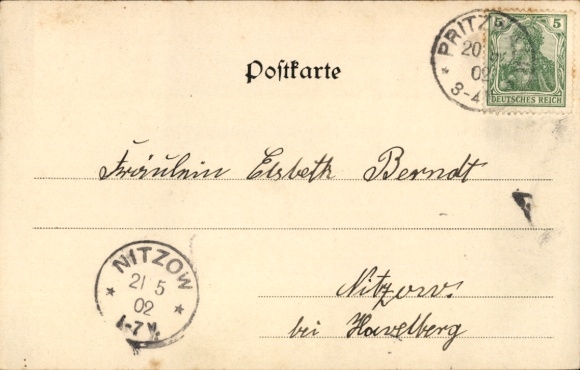 5 5
DEUTSCHES REICH
20
02
3-4
Postkarte
Fräulein Elsbeth Berndt
NITZOW
21 5
02
Nitzow.
bei Havelberg